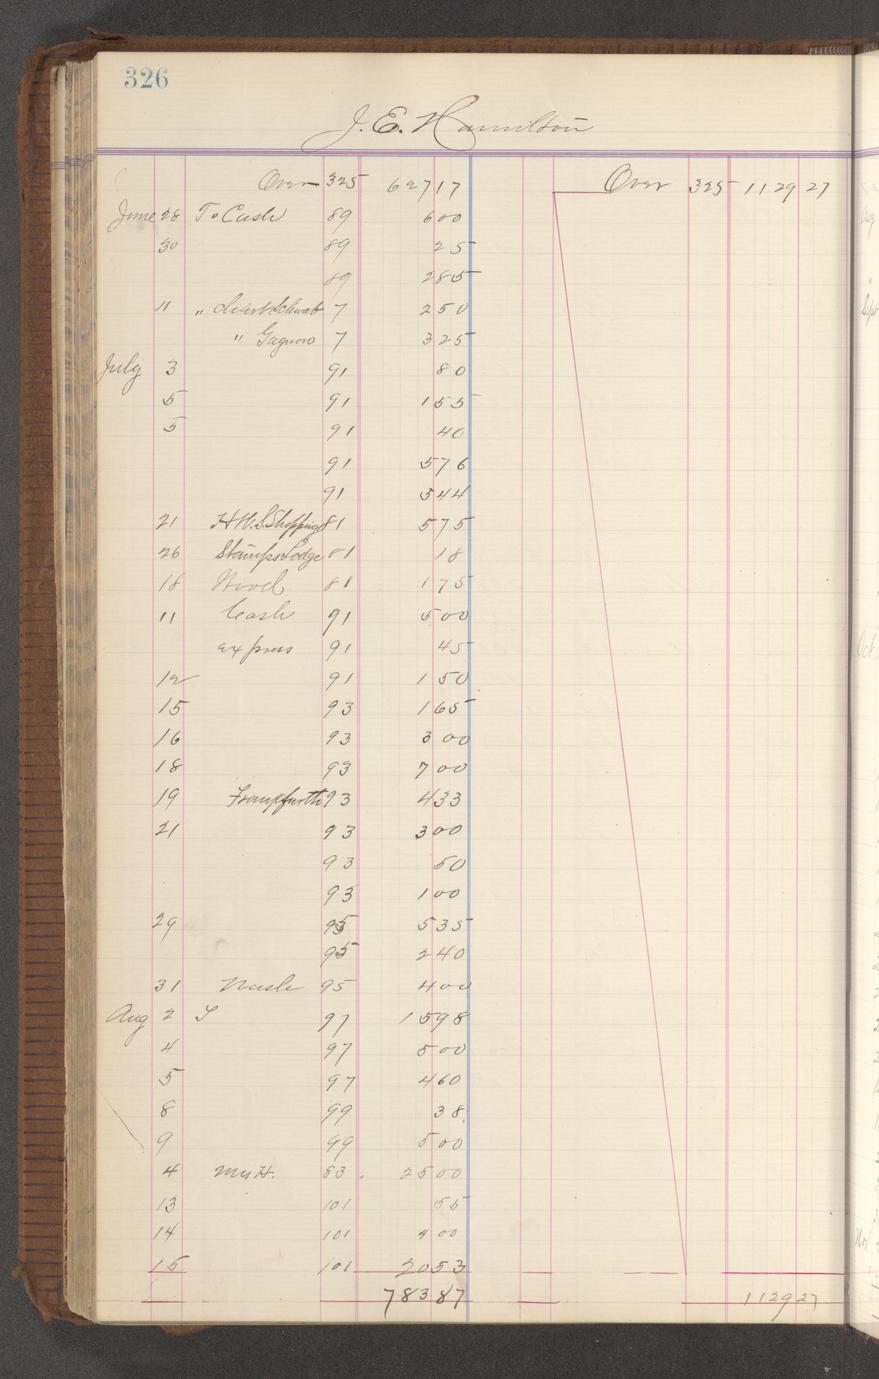 326
J. E. Hamilton
Over 325 627 17 Over 325 1129 27
June 28 To Cash 89 6 00
30 89 25
89 2 85
" " Schwab 7 2 50
" Gagnow 7 3 25
July 3 91 80
5 91 1 55
5 91 40
91 5 76
91 5 44
21 H.W.S. Shopping 81 5 75
26 Stamps Lodge 81 18
18 Wood 81 1 75
11 Cash 91 5 00
express 91 45
12 91 1 50
15 93 1 65
16 93 3 00
18 93 7 00
19 Frankfurth 93 4 33
21 93 3 00
93 50
93 1 00
29 95 5 35
95 2 40
31 Nash 95 4 00
Aug 2 97 15 98
4 97 5 00
5 97 4 60
8 99 38
9 99 5 00
4 Mrs H. 83 25 00
13 101 55
14 101 4 00
15 101 20 53
783 87 1129 27